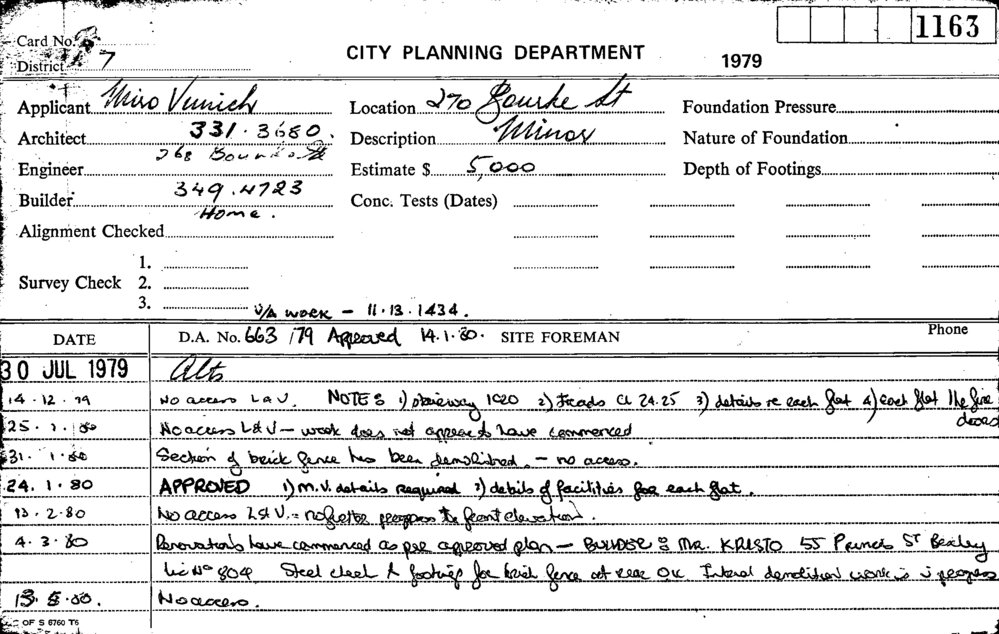 1163
Card No.
District 7
CITY PLANNING DEPARTMENT 1979
Applicant Miro Vunich Location 270 Bourke St Foundation Pressure
Architect 331.3680. Description Minor Nature of Foundation
268 Bourke St
Engineer Estimate $ 5,000 Depth of Footings
Builder 349.4723 Conc. Tests (Dates)
Home.
Alignment Checked
1.
Survey Check 2.
3.
V/A work - 11.13.1434.
DATE D.A. No. 663/79 Approved 14.1.80. SITE FOREMAN Phone
30 JUL 1979 Alts
14.12.79 No access L&V. NOTES 1) stairway 1020 2) Treads CL 24.25 3) details re each flat 4) each flat 1hr fire
doors
25.1.80 No access L&V - work does not appear to have commenced
31.1.80 Section of brick fence has been demolished. - no access.
24.1.80 APPROVED 1) M.V. details required 2) details of facilities for each flat.
13.2.80 No access L&V. - no further progress to front elevation.
4.3.80 Renovations have commenced as per approved plan - BUILDER: MR. KRISTO 55 Princes ST Bexley
Lic No 804 Steel check to footings for brick fence at rear OK Internal demolition work is in progress
13.5.80. No access.
OF S 6760 T6